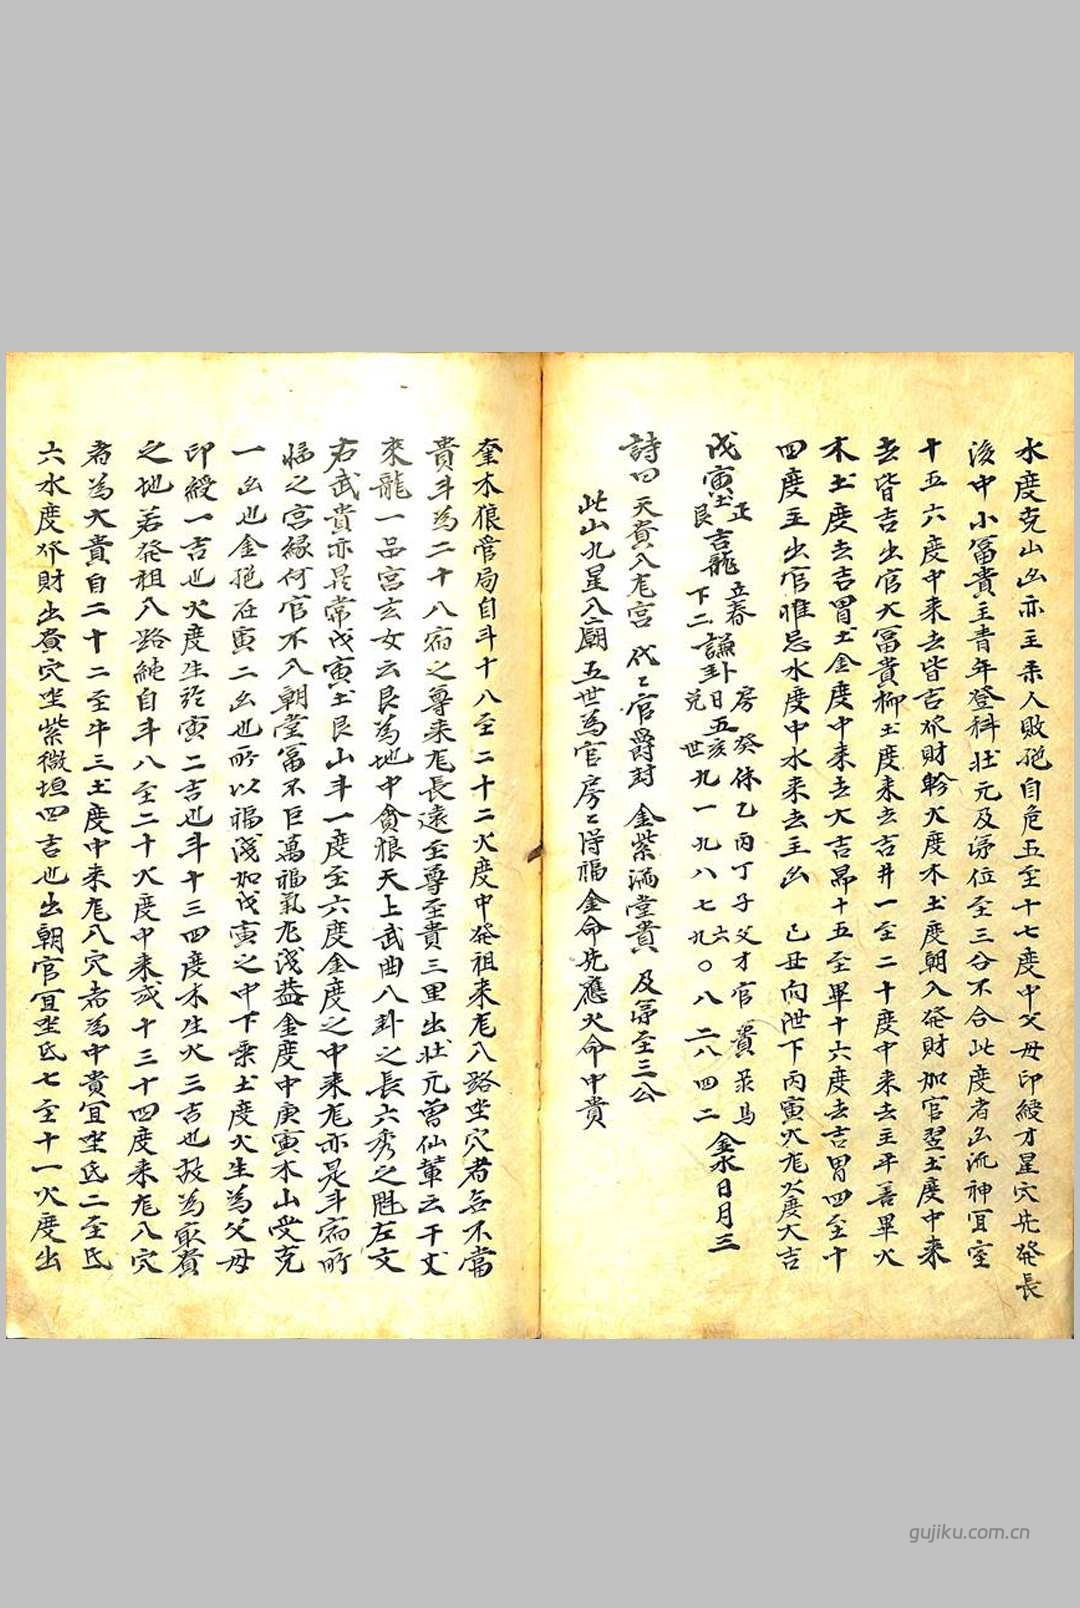 水度克山凶亦主来人敗絶自危五至十七度中父母印綬才星穴先發長
後中小冨貴主青年登科壮元及第位至三公不合此度者凶流神冝室
十五六度中来去皆吉水財軫火度木土度朝入發財加官翌土度中来
去皆吉出官大冨貴柳土度来去吉井一至二十度中来去主平善畢火
木土度去吉胃土金度中来去大吉昴十五至畢十六度去吉胃四至十
四度主出官惟忌水度中水来去主凶 己丑向泄下丙寅火龙火度大吉
戊寅土艮 正吉龍 立春下二 謙卦兑 房日五世 癸亥九 休一 乙九 丙八 丁七 子九六 父〇 才八 官二 貴八 禄四 馬二 金水日月三
詩曰 天貴入龙宫 代〻官爵封 金紫滿堂貴 及第至三公
此山九星八廟五世為官房〻得福金命先應火命中貴
奎木狼管局自斗十八至二十二火度中發祖来龙入路坐穴者無不當
貴斗為二十八宿之尊来龙長遠至尊至貴三里出壮元曽仙軰云千丈
來龍一品宮玄女云艮為地中貪狼天上武曲八卦之長六秀之魁左文
右武貴亦是常戊寅土艮山斗一度至六度金度之中来龙亦是斗宿所
臨之宮緣何官不入朝堂冨不巨萬福氣龙淺葢金度中庚寅木山受克
一凶也金絶在寅二凶也所以福淺如戊寅之中下乗土度火生為父母
印綬一吉也火度生於寅二吉也斗十三四度木生火三吉也故為㝡貴
之地若發祖入路純自斗八至二十火度中来或十三十四度来龙入穴
者為大貴自二十二至牛三土度中来龙入穴者為中貴冝坐氐二至氐
六水度水財出貴穴坐紫微垣四吉也出朝官冝坐氐七至十一火度出
gujiku.com.cn